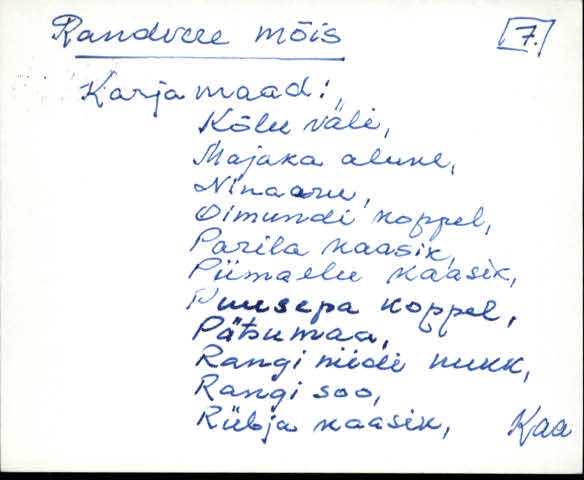 Randvere mõis
7.
Karjamaad:
Kõlu väli,
Majaka alune,
Ninaaru,
Oimundi koppel,
Parila kaasik,
Piimaelu kaasik,
Puusepa koppel,
Pätsumaa,
Rangi niidi nukk,
Rangi soo,
Rübja kaasik, Kaa